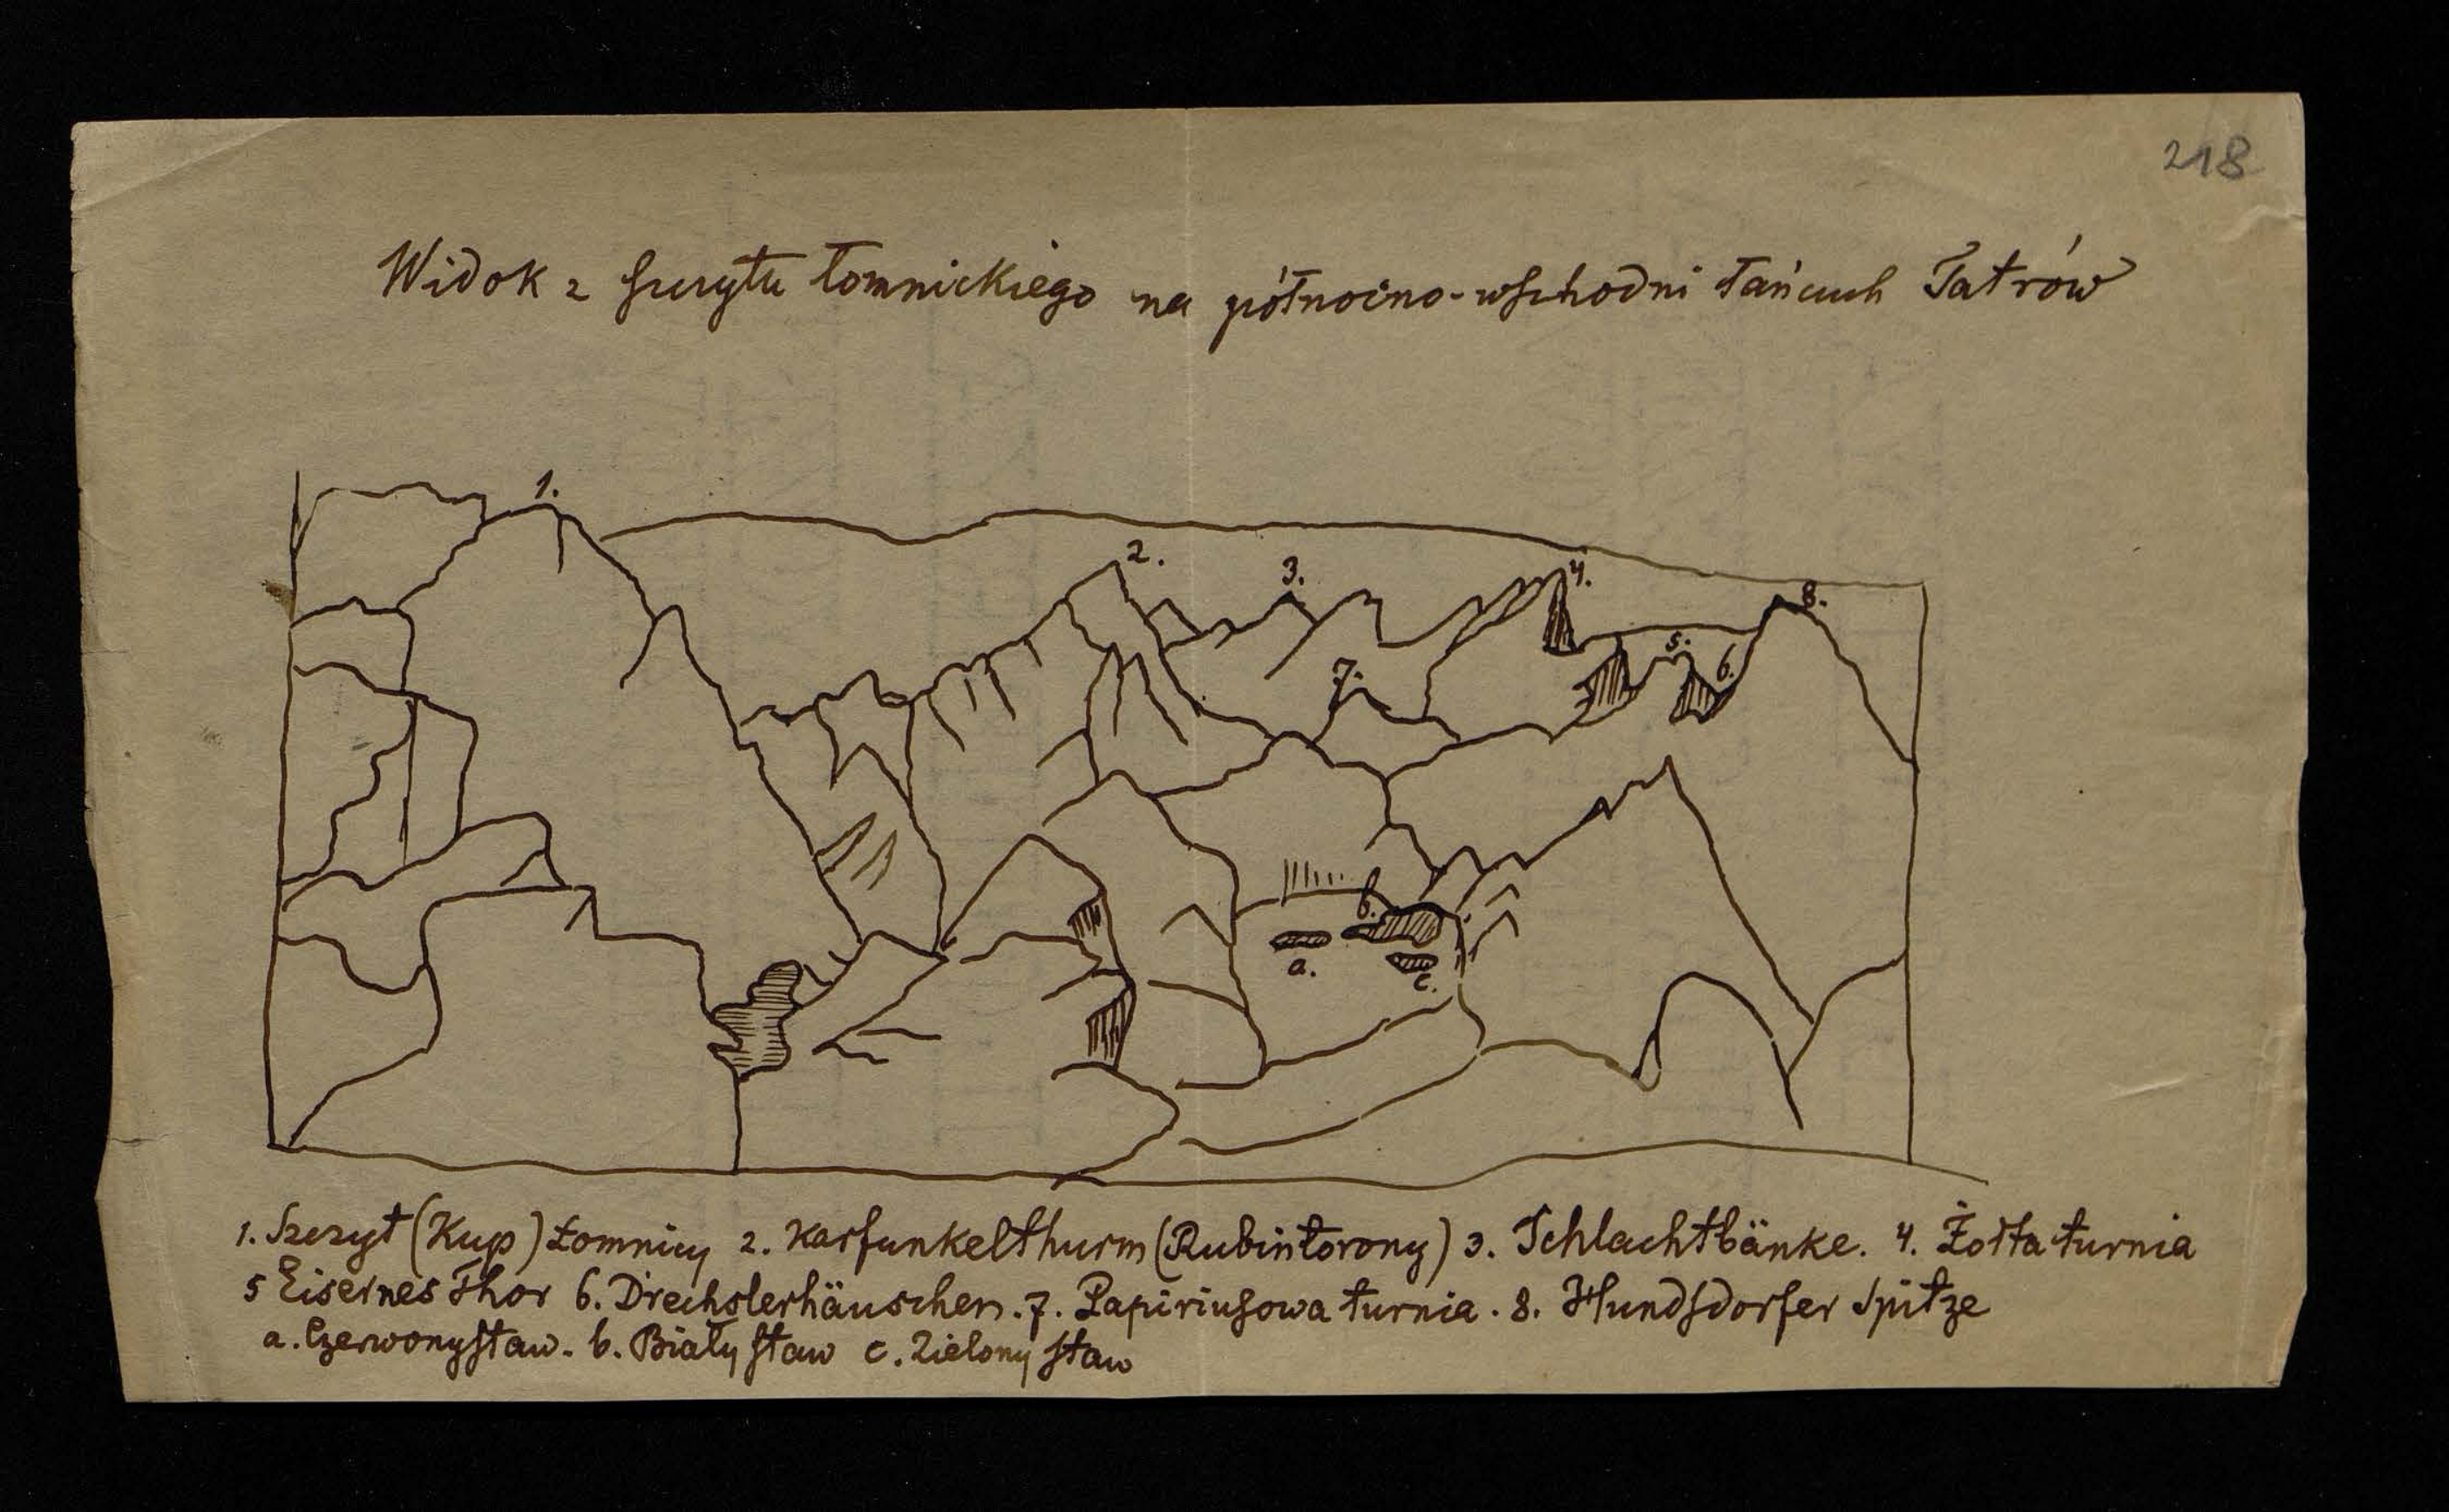 218
Widok z szczytu łomnickiego na północno-wschodni łańcuch Tatrów
1.
2.
3.
4.
8.
5.
6.
7.
b.
a.
c.
1. Szczyt (Kup) Łomnicy 2. Karfunkelthurm (Rubintorony) 3. Schlachtbänke. 4. Żółta turnia
5 Eisernes Thor 6. Drechslerhäuschen. 7. Papiriusowa turnia. 8. Hundsdorfer Spitze
a. Czerwony staw. b. Biały staw c. Zielony staw